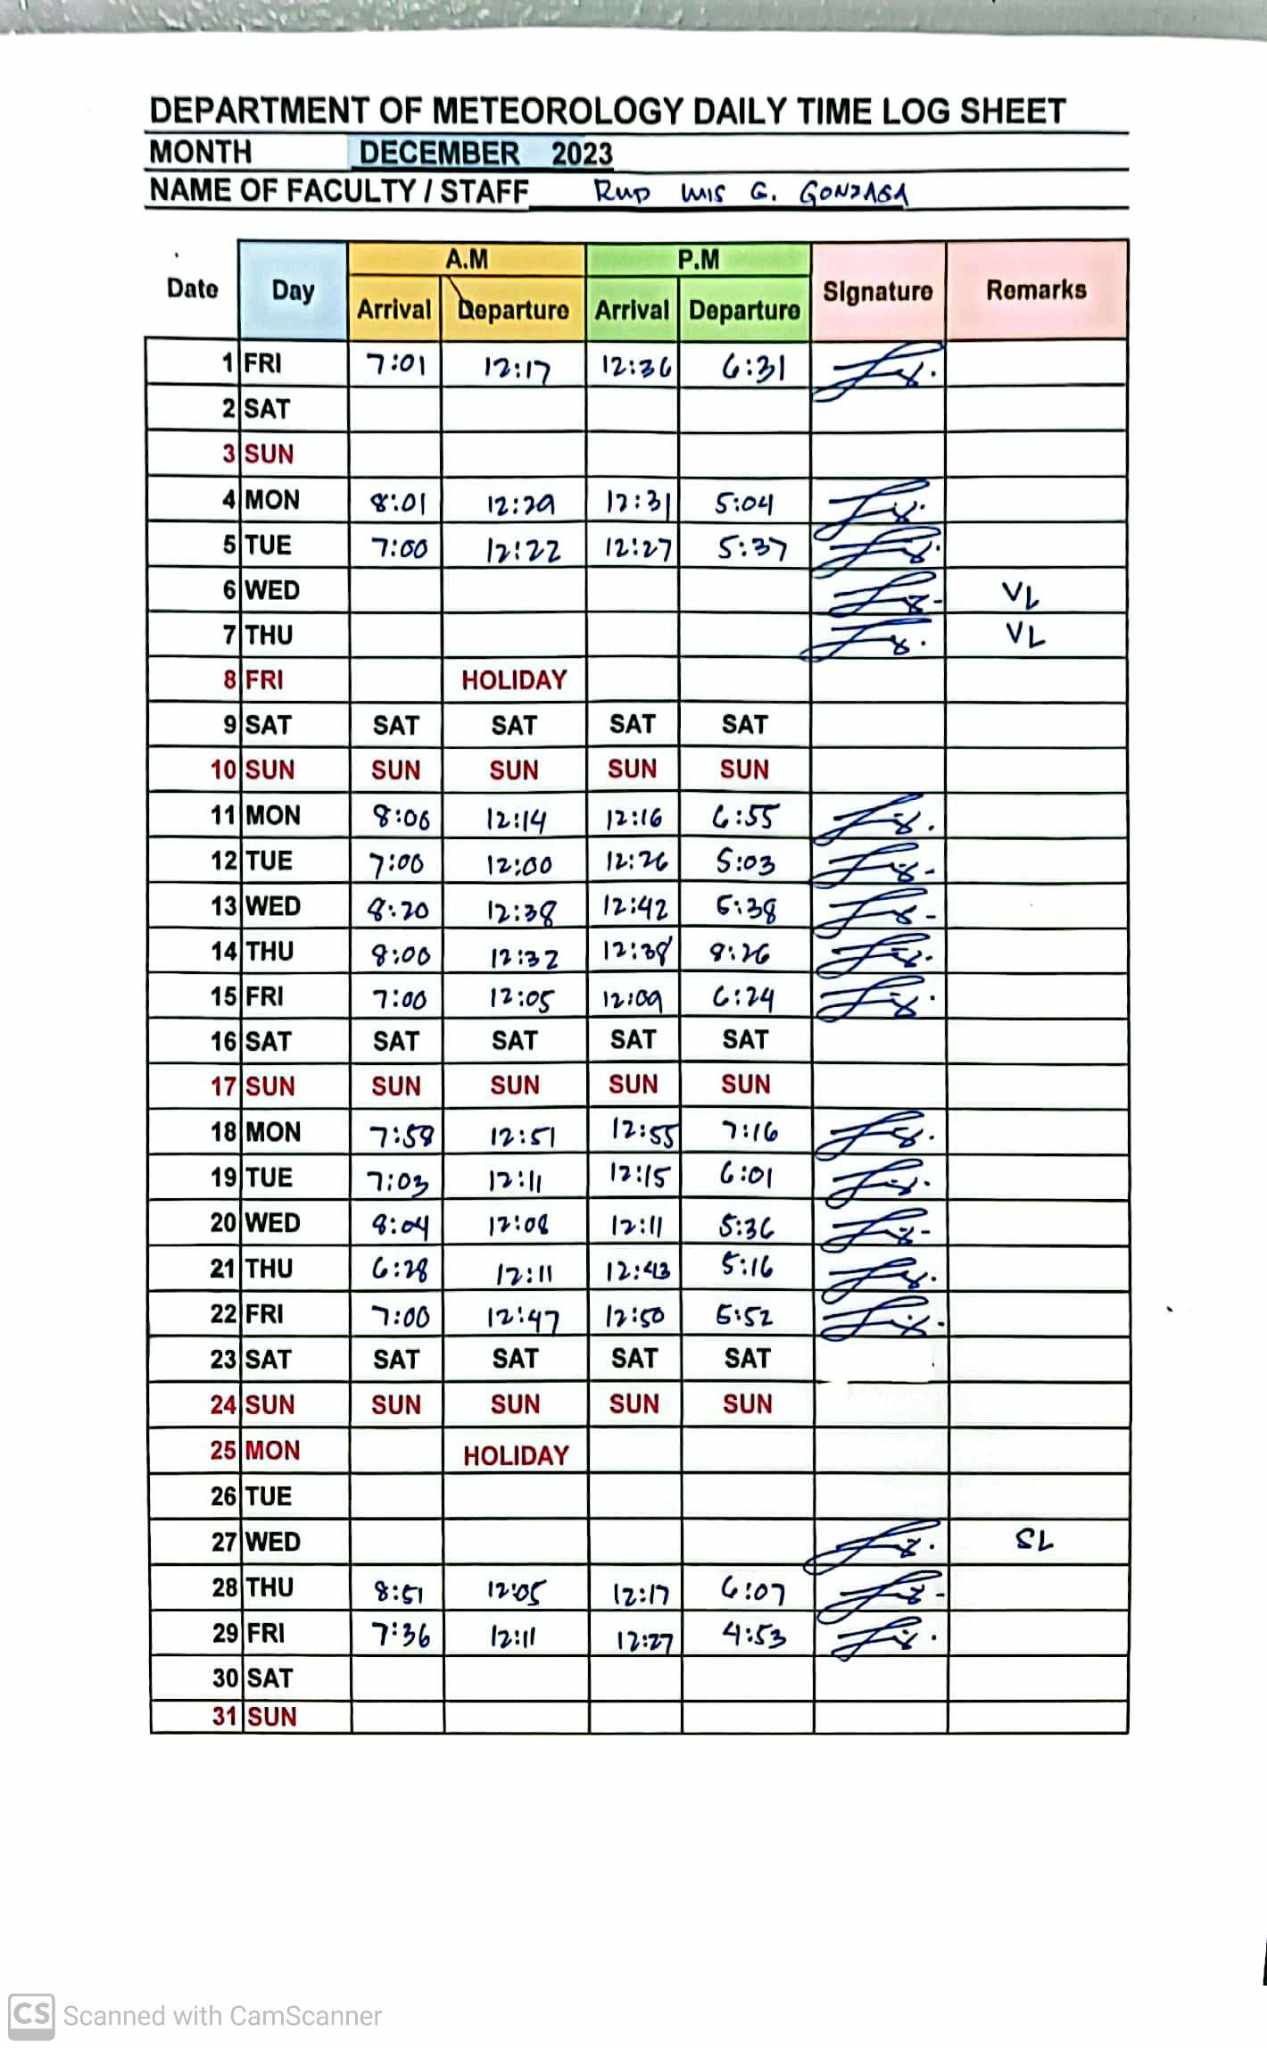 DEPARTMENT OF METEOROLOGY DAILY TIME LOG SHEET
MONTH DECEMBER 2023
NAME OF FACULTY / STAFF G. GONZAGA
A.M P.M
Date Day Arrival Departure Arrival Departure Signature Remarks
1 FRI 7:01 12:17 12:36 6:31
2 SAT
3 SUN
4 MON 8:01 12:29 12:31 5:04
5 TUE 7:00 12:22 12:27 5:37
6 WED VL
7 THU VL
8 FRI HOLIDAY
9 SAT SAT SAT SAT SAT
10 SUN SUN SUN SUN SUN
11 MON 8:06 12:14 12:16 6:55
12 TUE 7:00 12:00 12:26 5:03
13 WED 8:20 12:38 12:42
14 THU 8:00 12:32 12:38 8:26
15 FRI 7:00 12:05 12:09 6:24
16 SAT SAT SAT SAT SAT
17 SUN SUN SUN SUN SUN
18 MON 7:58 12:51 12:55 7:16
19 TUE 7:03 12:11 12:15 6:01
20 WED 8:04 12:08 12:11 5:36
21 THU 6:28 12:11 12:43 5:16
22 FRI 7:00 12:47 12:50
23 SAT SAT SAT SAT SAT
24 SUN SUN SUN SUN SUN
25 MON HOLIDAY
26 TUE
27 WED SL
28 THU 8:51 12:05 12:17 6:07
29 FRI 7:36 12:11 12:27 4:53
30 SAT
31 SUN
CS Scanned with CamScanner